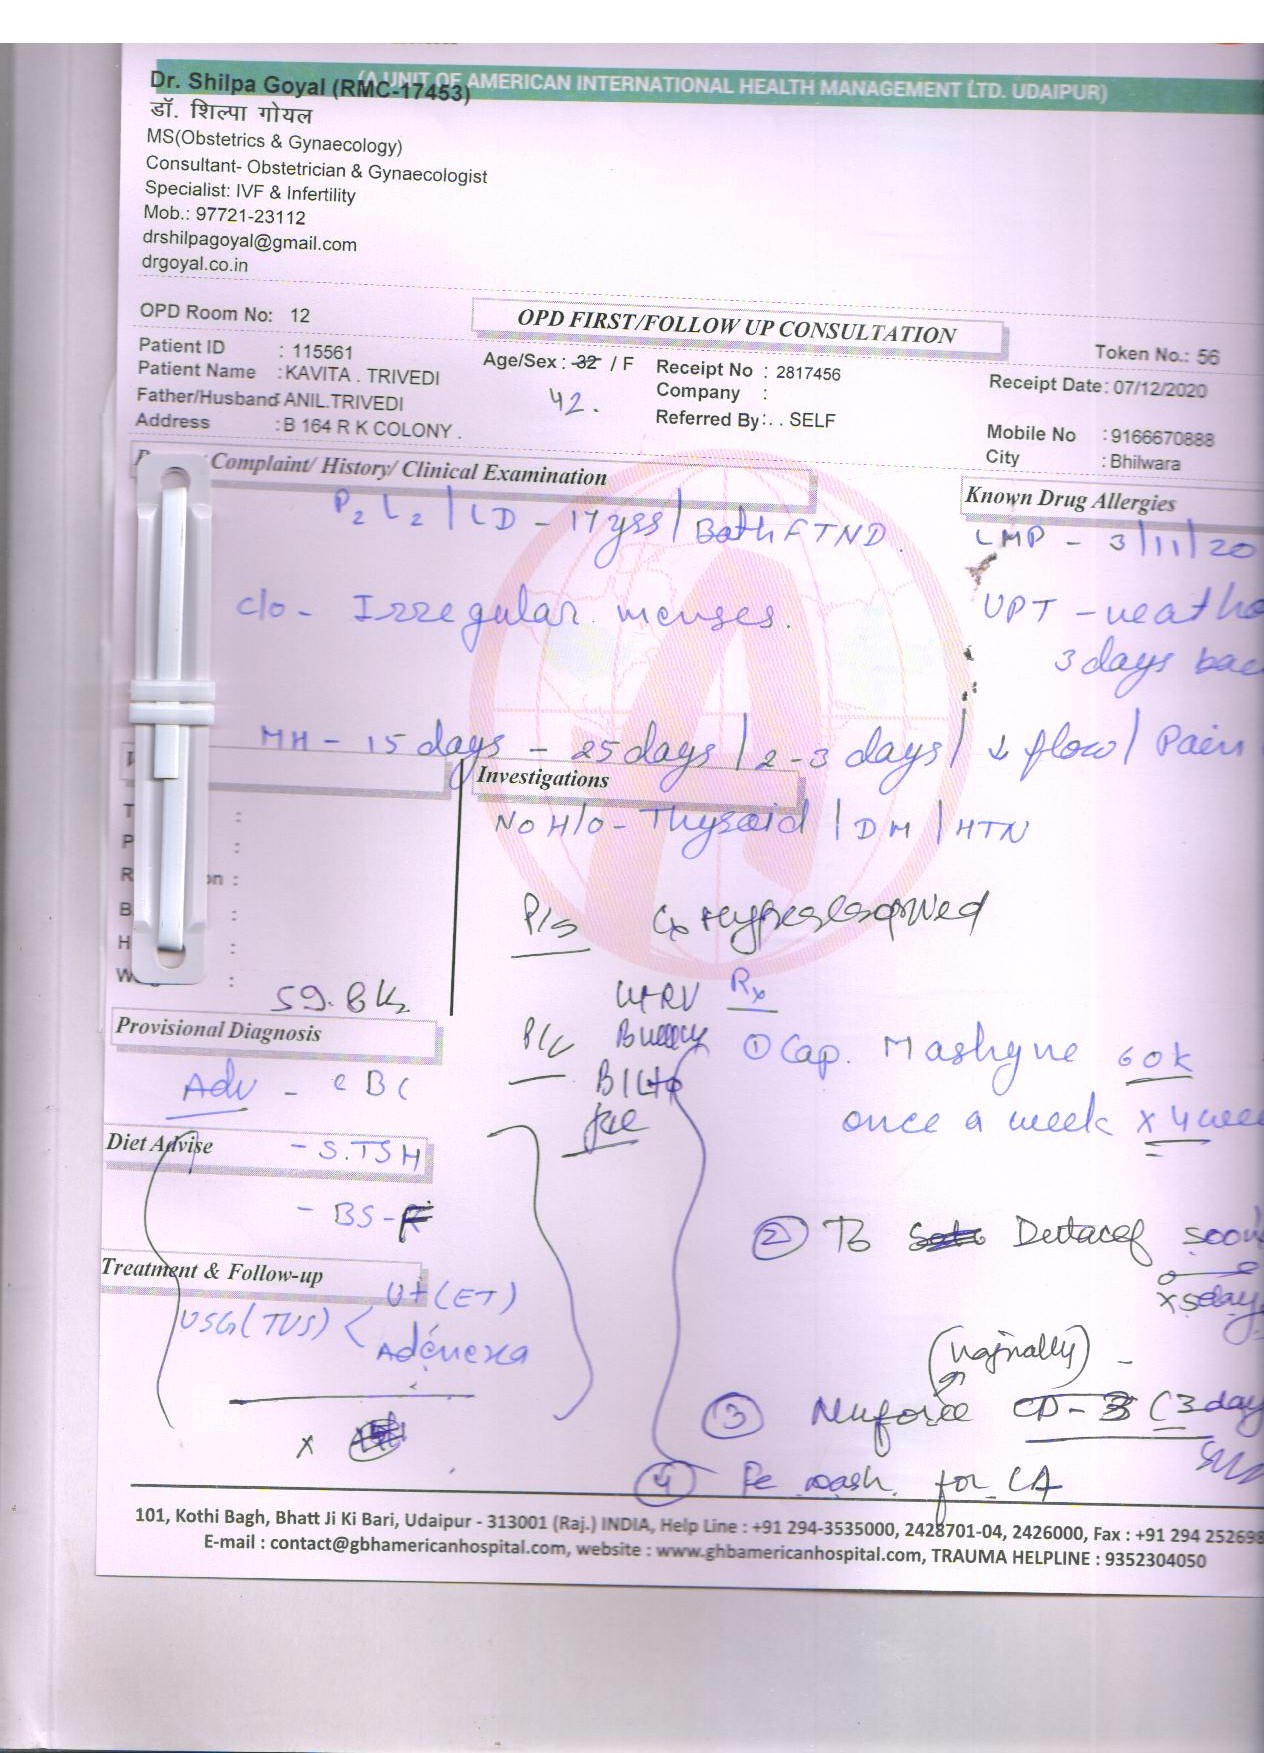 (A UNIT OF AMERICAN INTERNATIONAL HEALTH MANAGEMENT LTD. UDAIPUR)
Dr. Shilpa Goyal (RMC-17453)
डॉ. शिल्पा गोयल
MS(Obstetrics & Gynaecology)
Consultant- Obstetrician & Gynaecologist
Specialist: IVF & Infertility
Mob.: 97721-23112
drshilpagoyal@gmail.com
drgoyal.co.in
OPD Room No: 12
OPD FIRST/FOLLOW UP CONSULTATION
Token No.: 56
Patient ID : 115561
Age/Sex : 32 / F
42.
Receipt No : 2817456
Receipt Date: 07/12/2020
Patient Name : KAVITA . TRIVEDI
Company :
Father/Husband: ANIL.TRIVEDI
Referred By: . . SELF
Mobile No : 9166670888
Address : B 164 R K COLONY .
City : Bhilwara
Complaint/ History/ Clinical Examination
Known Drug Allergies
P2 L2 / LD - 17 yrs / Both FTND
LMP - 3/11/20
c/o - Irregular menses.
UPT -
3 days
MH - 15 days - 25 days / 2-3 days / ↓ flow / Pain
Investigations
No H/o - Thyroid / DM / HTN
T :
P :
R on :
B :
H :
W : 59.8 k
P/S Cx
Rx
Provisional Diagnosis
① Cap. 60k
once a week x 4
Adv - CBC
Diet Advise
- S.TSH
- BS-F
② Tb
x 5 day
Treatment & Follow-up
USG (TVS) < Ut (ET)
(vaginally) -
③ (3 day
x
④ wash for LA
101, Kothi Bagh, Bhatt Ji Ki Bari, Udaipur - 313001 (Raj.) INDIA, Help Line : +91 294-3535000, 2428701-04, 2426000, Fax : +91 294 252698
E-mail : contact@gbhamericanhospital.com, website : www.ghbamericanhospital.com, TRAUMA HELPLINE : 9352304050